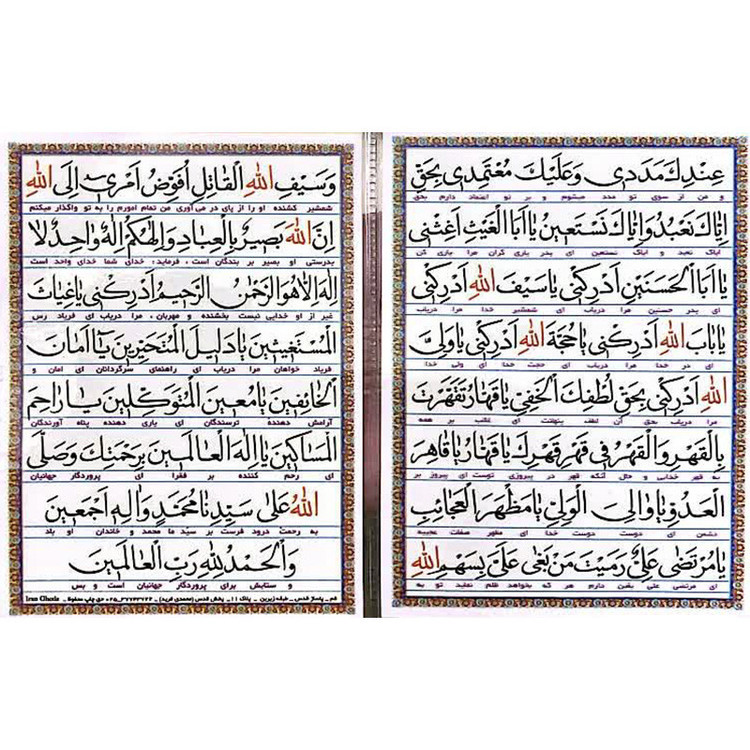 عِنْدِكَ مَدَدِی وَعَلَيْكَ مُعْتَمَدِی بِحَقِّ
و من از سوی تو مدد میشوم و بر تو اعتماد دارم بحق
اِيّاكَ نَعْبُدُ وَاِيّاكَ نَسْتَعينُ يا اَبَا الْغَيْثِ اَغِثْنی
ایاک نعبد و ایاک نستعین ای پدر یاری گران مرا یاری کن
يا اَبَا الْحَسَنَيْنِ اَدْرِكْنی يا سَيْفَ اللهِ اَدْرِكْنی
ای پدر حسنین مرا دریاب ای شمشیر خدا مرا دریاب
يا بابَ اللهِ اَدْرِكْنی يا حُجَّةَ اللهِ اَدْرِكْنی يا وَلِیَّ
ای در خدا مرا دریاب ای حجت خدا ای ولی خدا
اللهِ اَدْرِكْنی بِحَقِّ لُطْفِكَ الْخَفِیِّ يا قَهّارُ تَقَهَّرْتَ
مرا دریاب بحق آن لطف پنهانت ای غالب بر همه
بِالْقَهْرِ وَالْقَهْرُ فی قَهْرِ قَهْرِكَ يا قَهّارُ يا قاهِرَ
به قهر خدایی و حال آنکه قهر در پیروزی توست ای پیروز بر
الْعَدُوِّ يا والِیَ الْوَلِیِّ يا مَظْهَرَ الْعَجائِبِ
دشمن ای دوست دوست خدا ای مظهر صفات عجیبه
يا مُرْتَضی عَلِیُّ رَمَيْتَ مَنْ بَغی عَلَیَّ بِسَهْمِ اللهِ
ای مرتضی علی یقین دارم هر که بخواهد ظلم نماید تو به
وَسَيْفِ اللهِ الْقاتِلِ اُفَوِّضُ اَمْری اِلَی اللهِ
شمشیر کشنده او را از پای در می‌آوری من تمام امورم را به تو واگذار میکنم
اِنَّ اللهَ بَصيرٌ بِالْعِبادِ وَاِلهُكُمْ اِلهٌ واحِدٌ لا
بدرستی او بصیر بر بندگان است، فرماید، خدای شما خدای واحد است
اِلهَ اِلّا هُوَ الرَّحْمنُ الرَّحيمُ اَدْرِكْنی يا غِياثَ
غیر از او خدایی نیست بخشنده و مهربان، مرا دریاب ای فریاد رس
الْمُسْتَغيثينَ يا دَليلَ الْمُتَحَيِّرينَ يا اَمانَ
فریاد خواهان مرا دریاب ای راهنمای سرگردانان ای امان و
الْخائِفينَ يا مُعينَ الْمُتَوَكِّلينَ يا راحِمَ
آرامش دهنده ترسندگان ای یاری دهنده پناه آورندگان
الْمَساكينِ يا اِلهَ الْعالَمينَ بِرَحْمَتِكَ وَصَلَّی
ای رحم کننده بر فقرا ای پروردگار جهانیان
اللهُ عَلی سَيِّدِنا مُحَمَّدٍ وَآلِهِ اَجْمَعينَ
به رحمتت درود فرست بر سیّد ما محمد و خاندان او باد
وَالْحَمْدُ لِلّهِ رَبِّ الْعالَمينَ
و ستایش برای پروردگار جهانیان است و بس
قم - پاساژ قدس - طبقه زیرین - پلاک ۱۱ - پخش قدس